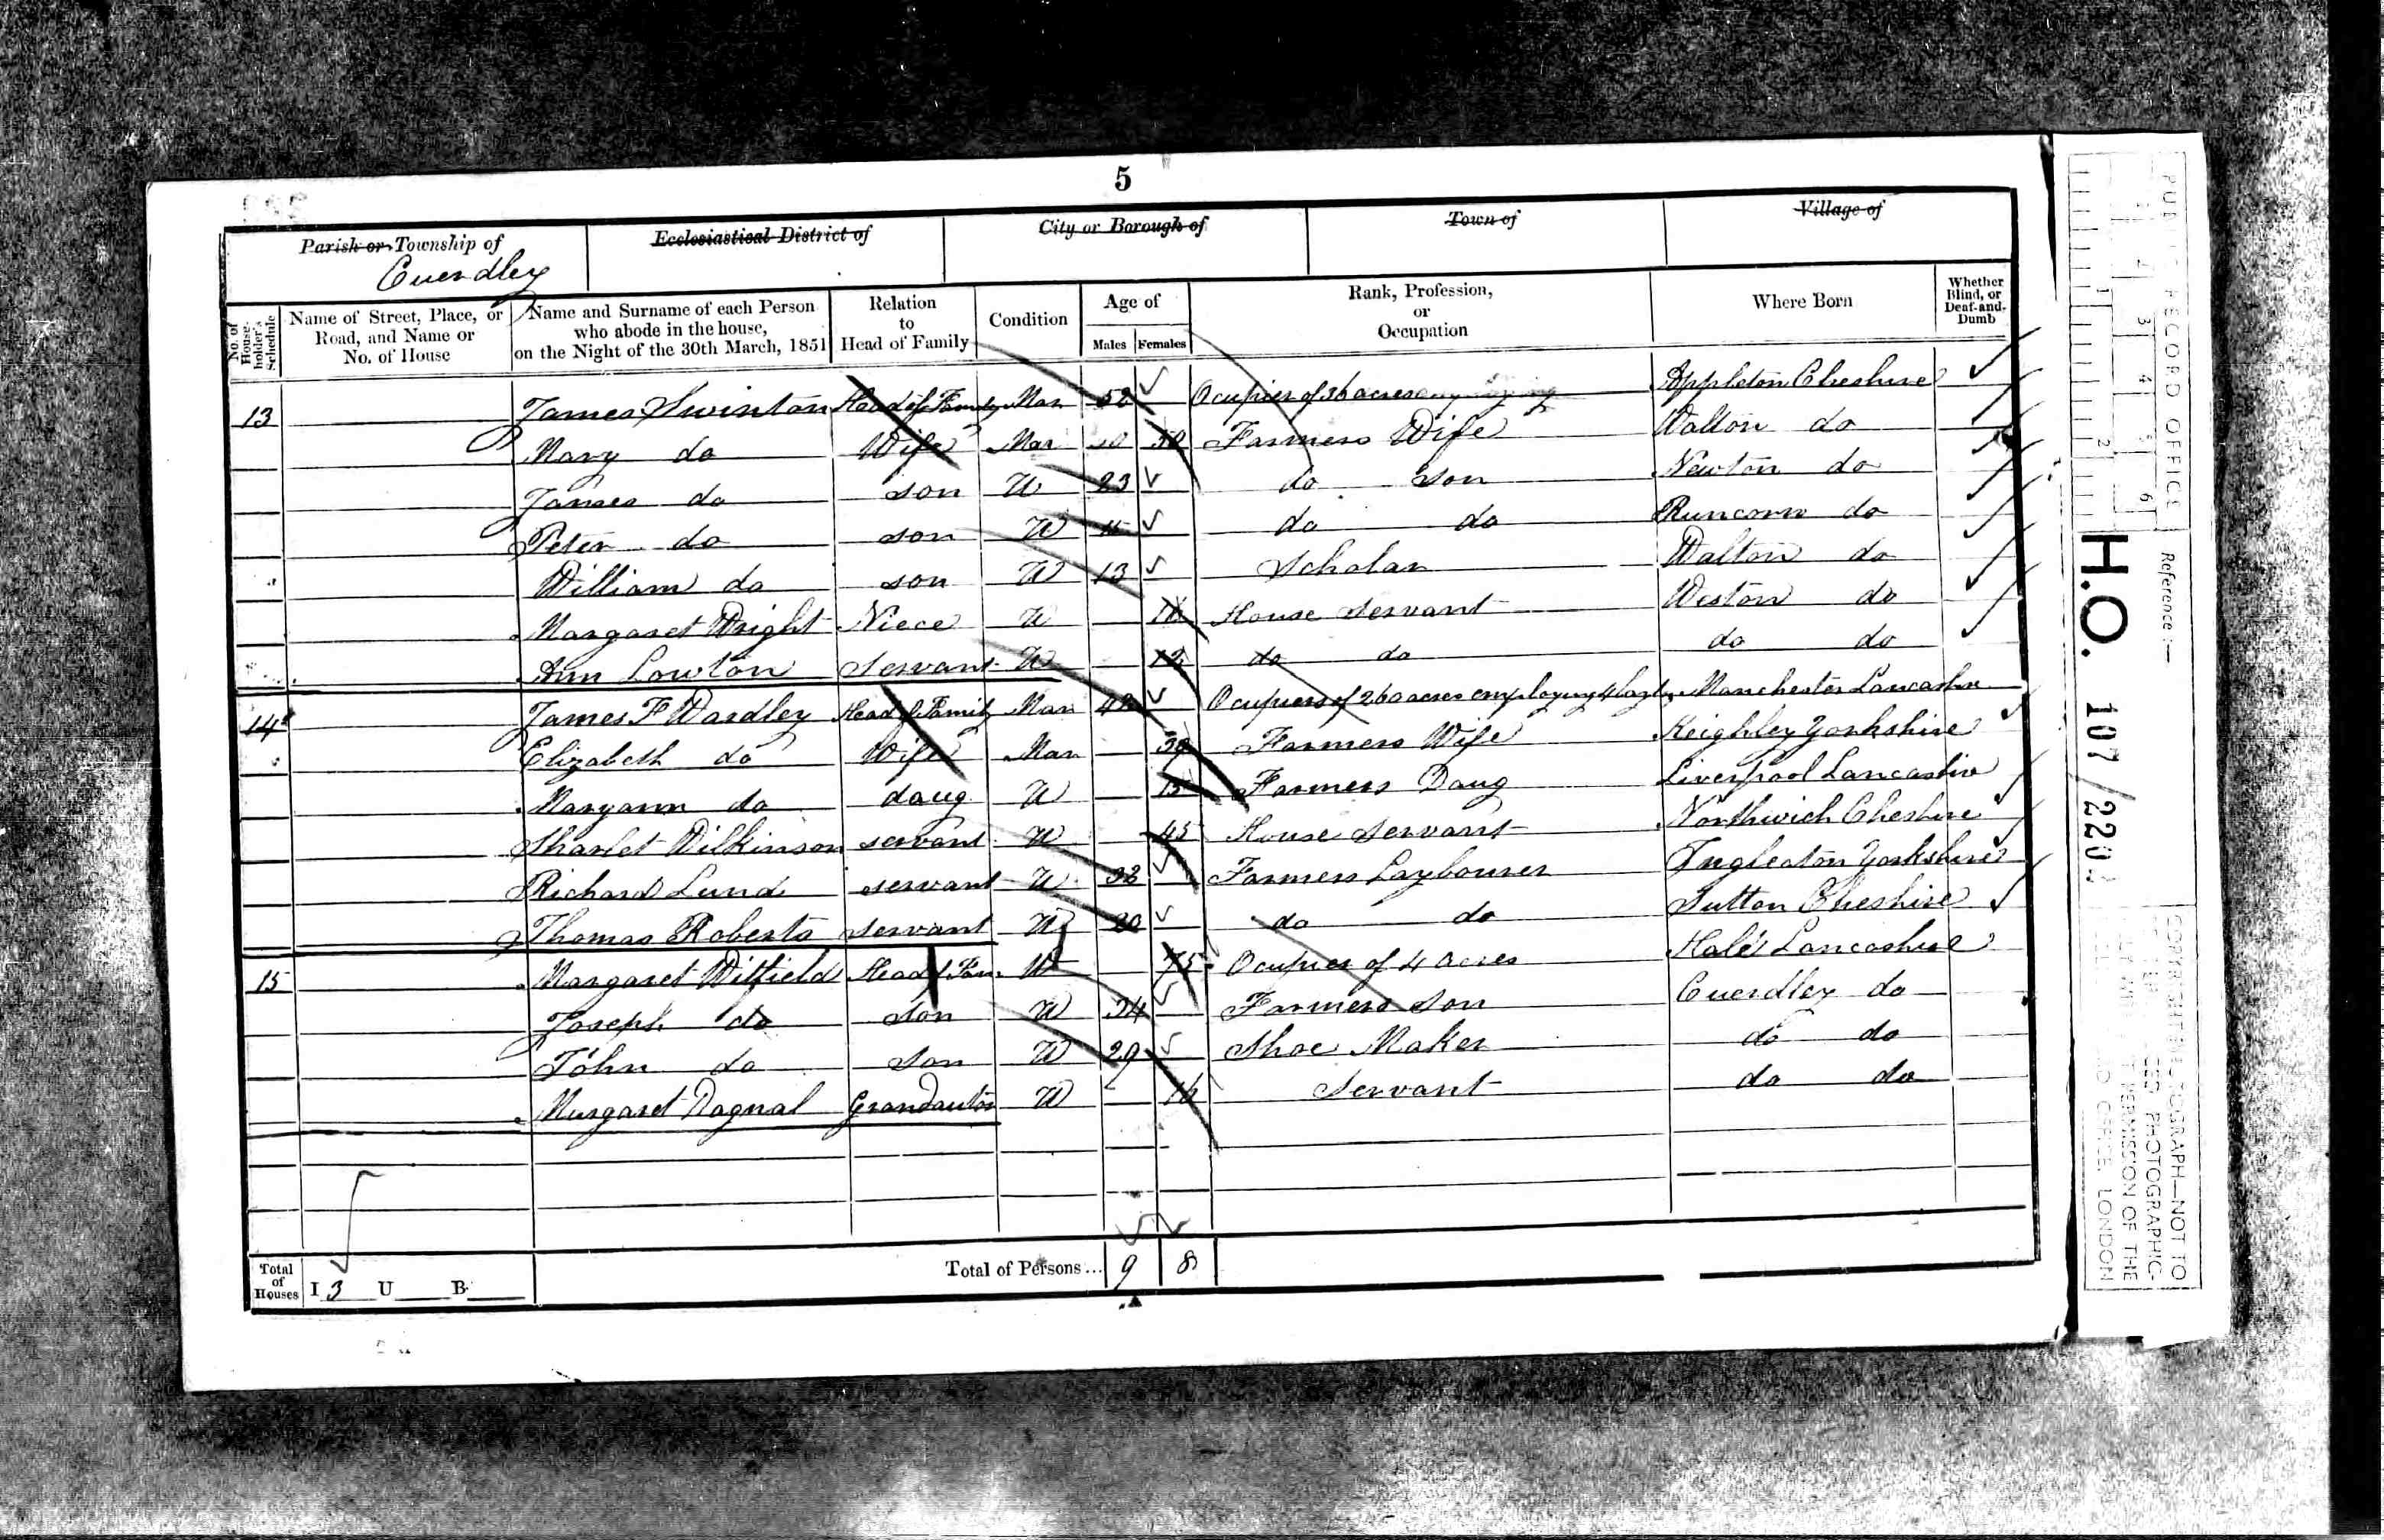 5
Parish or Township of
Cuerdley
Ecclesiastical District of
City or Borough of
Town of
Village of
No. of House-holder's Schedule
Name of Street, Place, or Road, and Name or No. of House
Name and Surname of each Person who abode in the house, on the Night of the 30th March, 1851
Relation to Head of Family
Condition
Age of
Males
Females
Rank, Profession, or Occupation
Where Born
Whether Blind, or Deaf-and-Dumb
13 James Swinton Head of Family Mar 52 Ocupier of 36 acres Appleton Cheshire
Mary do Wife Mar 50 Farmers Wife Walton do
James do son U 23 do son Newton do
Peter do son U do do Runcorn do
William do son U 13 Scholar Walton do
Margaret Wright Niece U 16 House servant Weston do
Ann Lowton Servant U 12 do do do do
14 James F Wardley Head of Family Mar 42 Ocupiers of 260 acres employing 4 Manchester Lancashire
Elizabeth do Wife Mar 39 Farmers Wife Keighley Yorkshire
Maryann do daug U 15 Farmers Daug Liverpool Lancashire
Sharlet Wilkinson servant U 45 House servant Northwich Cheshire
Richard Lund servant U 32 Farmers Laybourer Ingleaton Yorkshire
Thomas Roberts servant U 20 do do Sutton Cheshire
15 Margaret Witfield Head of Fam W 75 Ocupier of 4 acres Hale Lancashire
Joseph do son U 34 Farmers son Cuerdley do
John do son U 29 Shoe Maker do do
Margaret Dagnal Grandauter U 16 servant do do
Total of Houses I 3 U B
Total of Persons... 9 8
PUBLIC RECORD OFFICE
1 2 3 4 5 6
Reference:—
H.O. 107/2202
COPYRIGHT PHOTOGRAPH—NOT TO
PHOTOGRAPHIC-
PERMISSION OF THE
LONDON